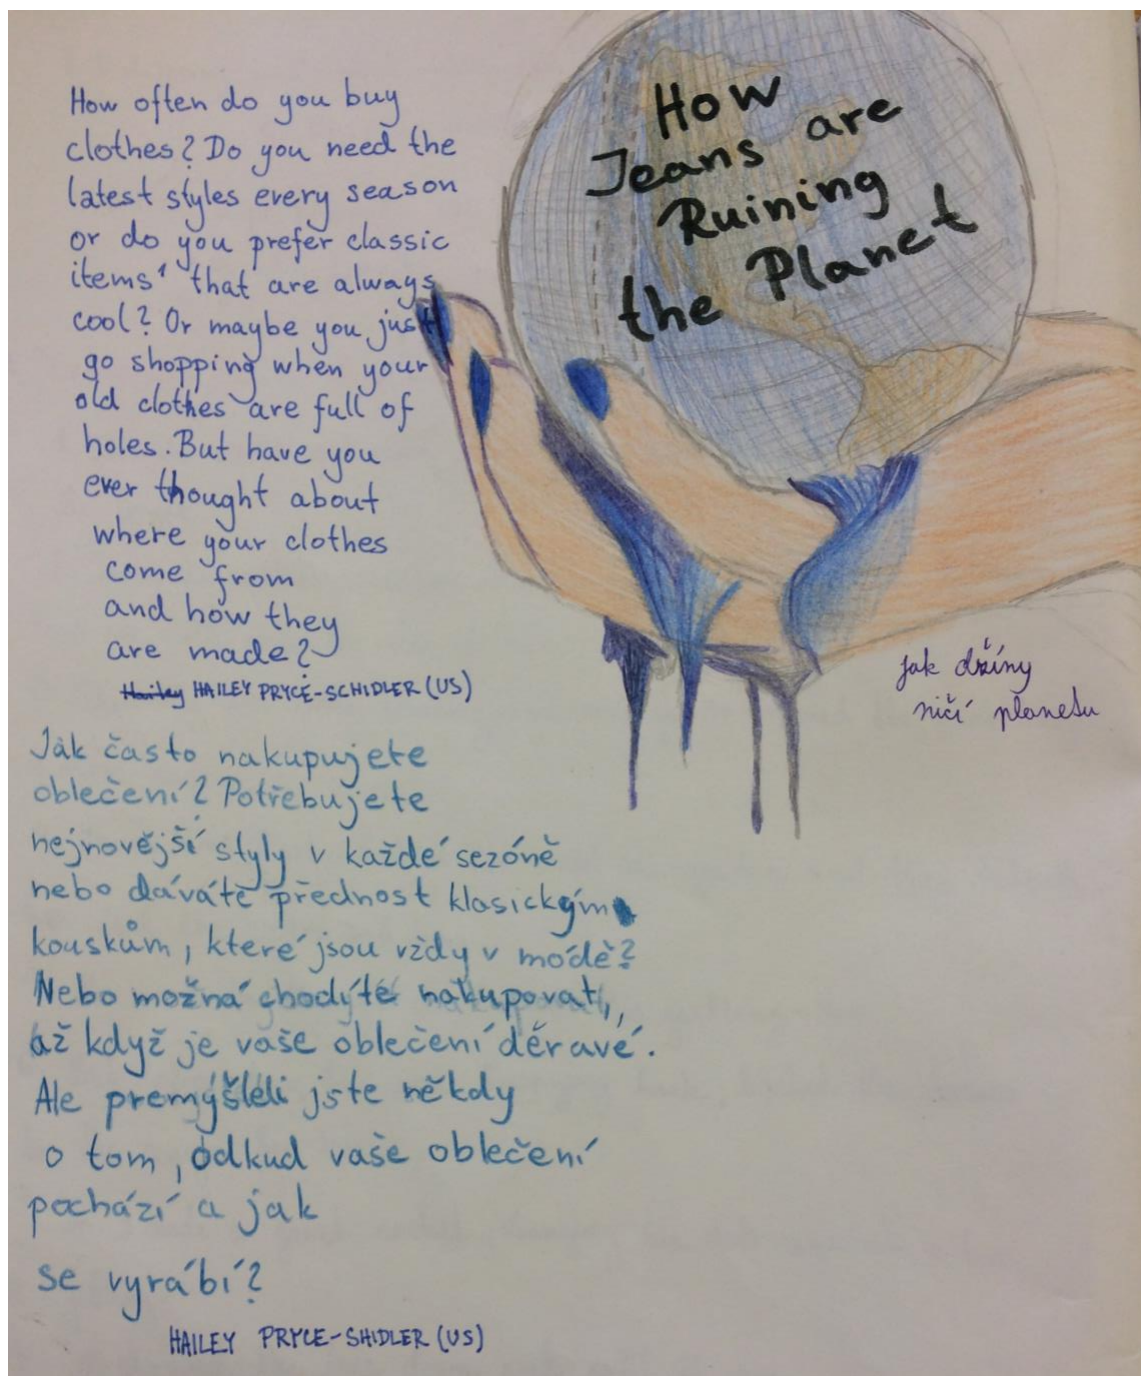 How often do you buy
clothes? Do you need the
latest styles every season
or do you prefer classic
items¹ that are always
cool? Or maybe you just
go shopping when your
old clothes are full of
holes. But have you
ever thought about
where your clothes
come from
and how they
are made?
Hailey HAILEY PRYCE-SCHIDLER (US)
How
Jeans are
Ruining
the Planet
jak džíny
ničí planetu
Jak často nakupujete
oblečení? Potřebujete
nejnovější styly v každé sezóně
nebo dáváte přednost klasickým
kouskům, které jsou vždy v módě?
Nebo možná chodýte nakupovat,
až když je vaše oblečení děravé.
Ale premýšleli jste někdy
o tom, odkud vaše oblečení
pochází a jak
se vyrábí?
HAILEY PRYCE-SHIDLER (US)